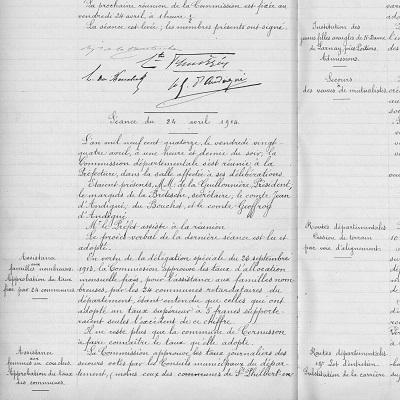 La prochaine réunion de la Commission est fixée au
vendredi 24 avril, à 1 heure ½.
La séance est levée; les membres présents ont signé.
Séance du 24 avril 1914.
L'an mil neuf cent quatorze, le vendredi vingt-
quatre avril, à une heure et demie du soir, la
Commission départementale s'est réunie à la
Préfecture, dans la salle affectée à ses délibérations.
Etaient présents: MM. de la Guillonnière, Président,
le marquis de la Bretesche, secrétaire; le comte Jean
d'Andigné, du Bouchet, et le comte Geoffroy
d'Andigné.
Mr le Préfet assiste à la réunion.
Le procès-verbal de la dernière séance est lu et
adopté.
Assistance
aux
familles nombreuses.
Approbation du taux
fixé par 24 communes.
En vertu de la délégation spéciale du 26 septembre
1913, la Commission approuve les taux d'allocation
mensuelle fixés, pour l'assistance aux familles nom-
breuses, par les 24 communes retardataires du
département, étant entendu que celles qui ont
adopté un taux supérieur à 5 francs supporte-
raient seules l'excédent de ce chiffre.
Il ne reste plus que la commune de
à faire connaître le taux qu'elle adopte.
Assistance
aux
femmes en couches.
Approbation du taux
des communes.
La Commission approuve les taux journaliers des
secours votés par les Conseils municipaux du dépar-
tement, (moins ceux des communes de St Philbert-en-
Institution des
jeunes filles aveugles de N-Dame
de Larnay, près Poitiers.
Admissions.
Secours
des veuves de mutualistes.
Routes départementales
Cession de terrain
par voie d'alignement.
Routes départementales
Lot d'entretien
Substitution de la carrière